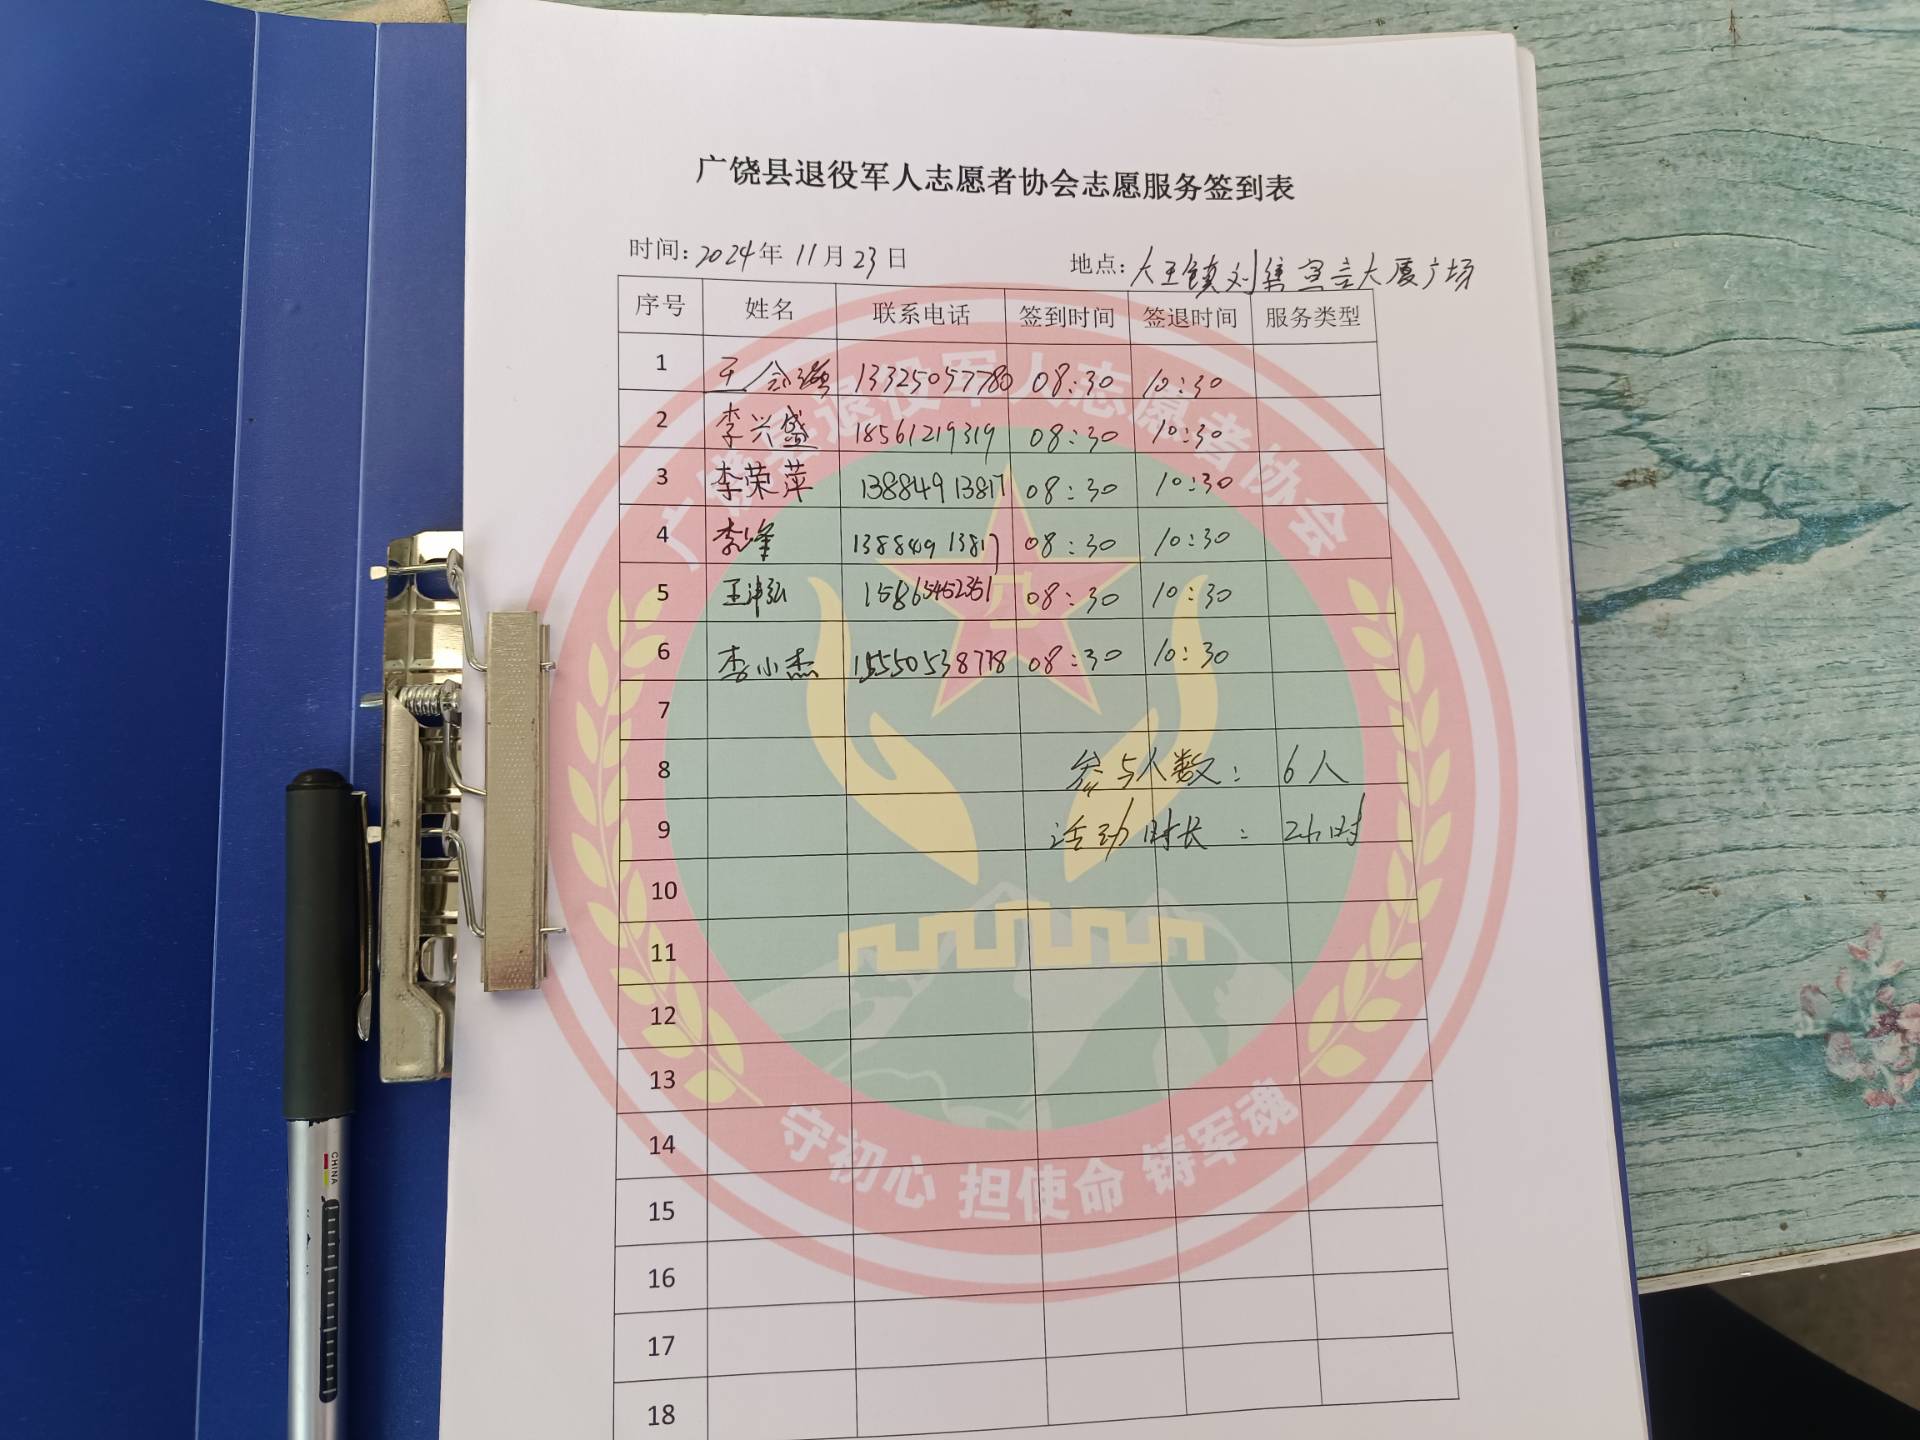 广饶县退役军人志愿者协会志愿服务签到表
时间: 2024年 11月 23日 地点: 大王镇刘集宣言大厦广场
序号 姓名 联系电话 签到时间 签退时间 服务类型
1 王 13325057780 08:30 10:30
2 李兴盛 18561219319 08:30 10:30
3 李荣萍 13884913817 08:30 10:30
4 李峰 13884913817 08:30 10:30
5 王津弘 15865452351 08:30 10:30
6 李小杰 15550538778 08:30 10:30
7
8 参与人数: 6人
9 活动时长: 2小时
10
11
12
13
14
15
16
17
18
广饶县退役军人志愿者协会
守初心 担使命 铸军魂
CHINA